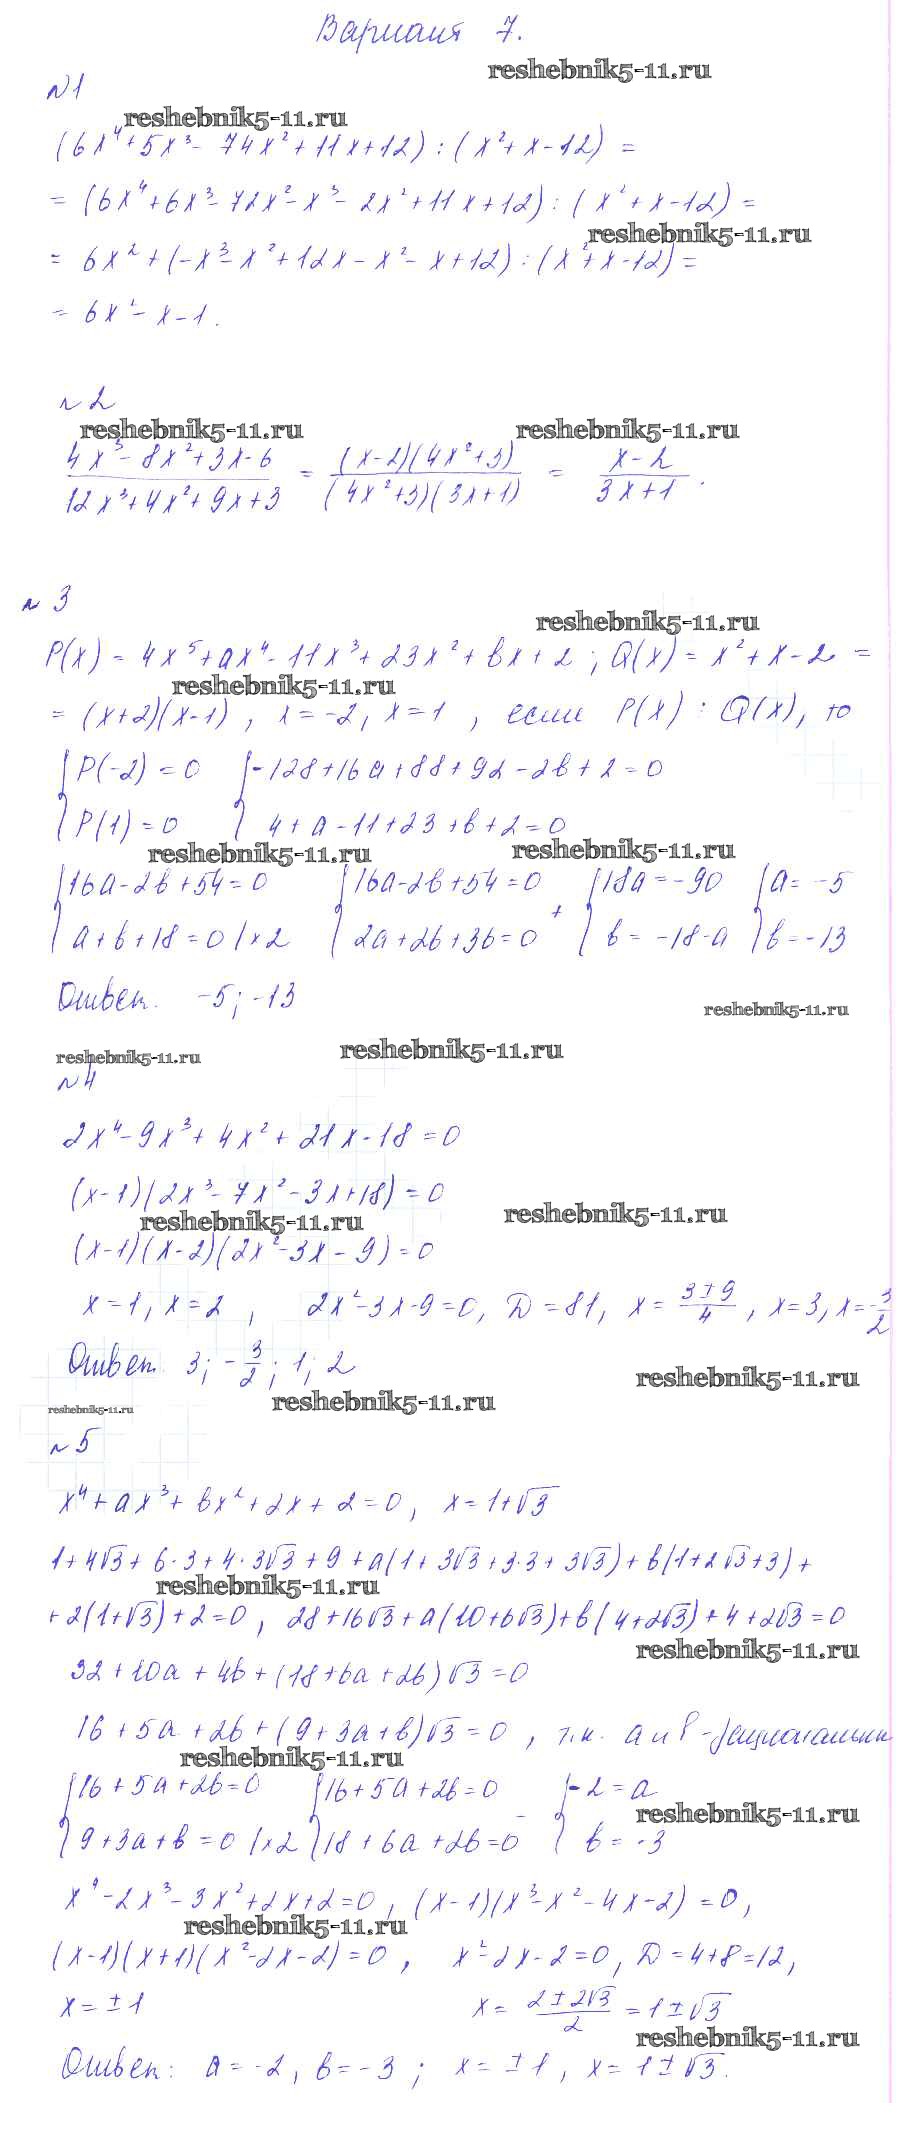 Вариант 7.
reshebnik5-11.ru
№1
reshebnik5-11.ru
(6x⁴+5x³-74x²+11x+12):(x²+x-12) =
= (6x⁴+6x³-72x²-x³-2x²+11x+12):(x²+x-12) =
reshebnik5-11.ru
= 6x²+(-x³-x²+12x-x²-x+12):(x²+x-12) =
= 6x²-x-1.
№2
reshebnik5-11.ru reshebnik5-11.ru
(4x³-8x²+3x-6)/(12x³+4x²+9x+3) = ((x-2)(4x²+3))/((4x²+3)(3x+1)) = (x-2)/(3x+1).
№3
reshebnik5-11.ru
P(x) = 4x⁵+ax⁴-11x³+23x²+bx+2; Q(x) = x²+x-2 =
reshebnik5-11.ru
= (x+2)(x-1), x=-2, x=1, если P(x) : Q(x), то
{P(-2)=0 {-128+16a+88+92-2b+2=0
{P(1)=0 {4+a-11+23+b+2=0
reshebnik5-11.ru reshebnik5-11.ru
{16a-2b+54=0 {16a-2b+54=0 {18a=-90 {a=-5
{a+b+18=0 |×2 {2a+2b+36=0 + {b=-18-a {b=-13
Ответ. -5; -13
reshebnik5-11.ru
reshebnik5-11.ru reshebnik5-11.ru
№4
2x⁴-9x³+4x²+21x-18=0
(x-1)(2x³-7x²-3x+18)=0
reshebnik5-11.ru reshebnik5-11.ru
(x-1)(x-2)(2x²-3x-9)=0
x=1, x=2, 2x²-3x-9=0, D=81, x=(3±9)/4, x=3, x=-3/2
Ответ. 3; -3/2; 1; 2
reshebnik5-11.ru
reshebnik5-11.ru reshebnik5-11.ru
№5
x⁴+ax³+bx²+2x+2=0, x=1+√3
1+4√3+6·3+4·3√3+9+a(1+3√3+3·3+3√3)+b(1+2√3+3)+
reshebnik5-11.ru
+2(1+√3)+2=0, 28+16√3+a(10+6√3)+b(4+2√3)+4+2√3=0
reshebnik5-11.ru
32+10a+4b+(18+6a+2b)√3=0
16+5a+2b+(9+3a+b)√3=0, т.к. a и b -рациональны
reshebnik5-11.ru
{16+5a+2b=0 {16+5a+2b=0 {-2=a
reshebnik5-11.ru
{9+3a+b=0 |×2 {18+6a+2b=0 - {b=-3
x⁴-2x³-3x²+2x+2=0, (x-1)(x³-x²-4x-2)=0,
reshebnik5-11.ru
(x-1)(x+1)(x²-2x-2)=0, x²-2x-2=0, D=4+8=12,
x=±1 x=(2±2√3)/2=1±√3
reshebnik5-11.ru
Ответ: a=-2, b=-3; x=±1, x=1±√3.